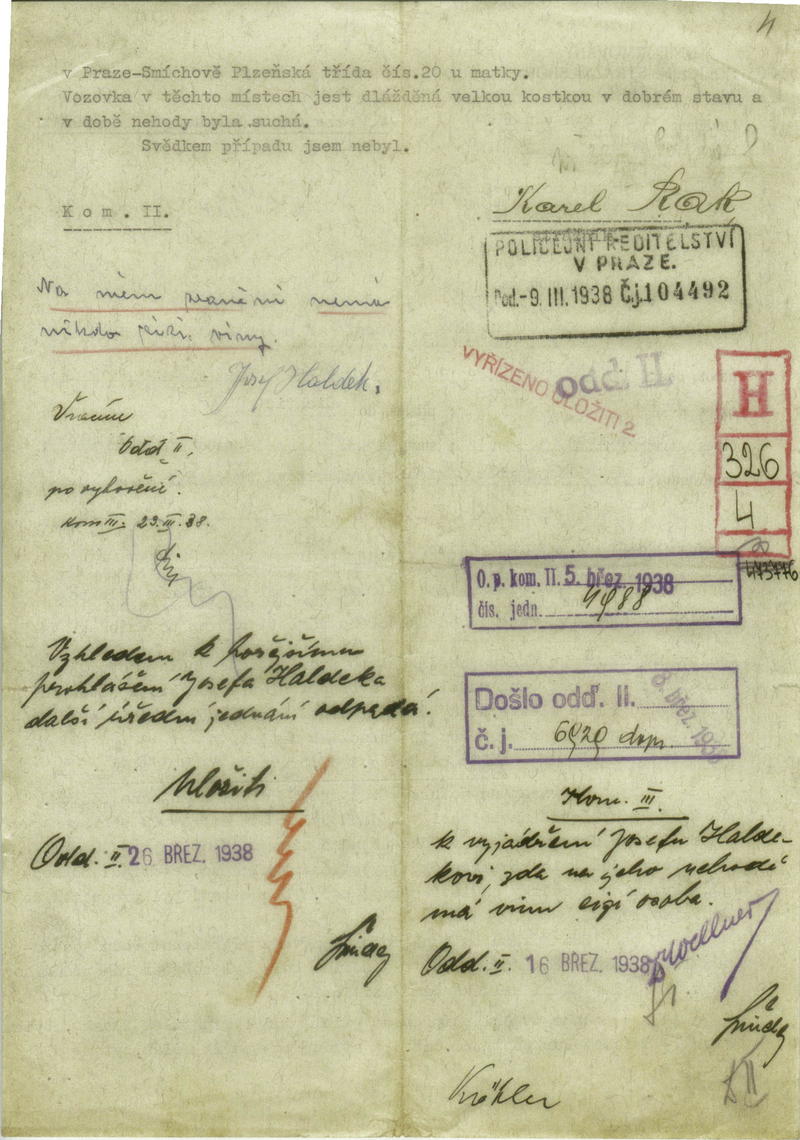 4
v Praze-Smíchově Plzeňská třída čís.20 u matky.
Vozovka v těchto místech jest dlážděná velkou kostkou v dobrém stavu a
v době nehody byla suchá.
Svědkem případu jsem nebyl.
Karel Rak
Kom. II.
POLICEJNÍ ŘEDITELSTVÍ
V PRAZE.
Pod.-9. III. 1938 Čj. 104492
Na mém zranění nemá
nikdo cizí viny.
Josef Haldek.
VYŘÍZENO ULOŽITI 2
odd. II.
H
326
4
Vracím
Odd II.
po vyhovění.
Kom III. 23.III.38.
O. p. kom. II. 5. břez. 1938
čís. jedn. 4988
Vzhledem k hořejšímu
prohlášení Josefa Haldeka
další úřední jednání odpadá.
Uložiti
Odd. II. 26 BŘEZ. 1938
Došlo odd. II. 8. břez. 1938
č. j. 6929 dopr.
Kom. III.
k vyjádření Josefu Halde-
kovi, zda na jeho nehodě
má vinu cizí osoba.
Odd. II. 16 BŘEZ. 1938